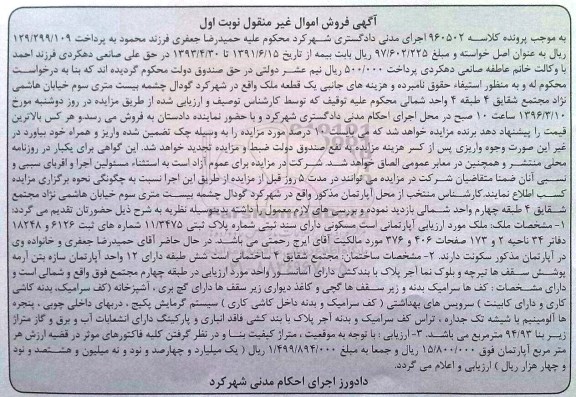 آگهی فروش اموال غیر منقول نوبت اول
به موجب پرونده کلاسه ۹۶۰۵۰۲ اجرای مدنی دادگستری شهرکرد محکوم علیه حمیدرضا جعفری فرزند محمود به پرداخت ۱۳۹/۲۹۹/۱۰۹
ریال به عنوان اصل خواسته و مبلغ ۹۷/۶۰۲/۲۲۵ ریال بابت بیمه از تاریخ ۱۳۹۱/۶/۱۵ تا ۱۳۹۳/۴/۳۰ در حق علی صانعی دهکردی فرزند احمد
با وکالت خانم عاطفه صانعی دهکردی پرداخت ۵۰۰/۰۰۰ ریال نیم عشر دولتی در حق صندوق دولت محکوم گردیده اند که بنا به درخواست
محکوم له و به منظور استیفاء حقوق نامبرده و هزینه های جانبی یک قطعه ملک واقع در شهرکرد گودال چشمه بیست متری سوم خیابان هاشمی
نژاد مجتمع شقایق ۴ طبقه ۴ واحد شمالی محکوم علیه توقیف که توسط کارشناس توصیف و ارزیابی شده از طریق مزایده در روز دوشنبه مورخ
۱۳۹۶/۳/۱۰ ساعت ۱۰ صبح در محل اجرای احکام مدنی دادگستری شهرکرد و با حضور نماینده دادستان به فروش می رسد و هر کس بالاترین
قیمت را پیشنهاد دهد برنده مزایده خواهد شد که مورد مزایده را به وسیله چک تضمین شده واریز و همراه خود بیاورد در
غیر این صورت وجوه واریزی پس از کسر هزینه مزایده به نفع صندوق دولت ضبط و مزایده تجدید خواهد شد. این گواهی برای یکبار در روزنامه
محلی منتشر و همچنین در معابر عمومی الصاق خواهد شد. شرکت در مزایده برای عموم آزاد است به استثناء مسئولین اجرا و اقربای سببی و
نسبی آنان ضمنا متقاضیان شرکت در مزایده می توانند در مدت ۵ روز قبل از مزایده از طریق این اجرا نسبت به چگونگی نحوه برگزاری مزایده
کسب اطلاع نمایند. کارشناس منتخب از محل آپارتمان مذکور واقع در شهرکرد گودال چشمه بیست متری سوم خیابان هاشمی نژاد مجتمع
شقایق ۴ طبقه چهارم واحد شمالی بازدید نموده و بررسی های لازم معمول داشته بدینوسیله نظریه به شرح ذیل حضورتان تقدیم می گردد:
۱- مشخصات ملک: ملک مورد ارزیابی آپارتمانی است مسکونی دارای سند ثبتی شماره پلاک ثبتی ۱۱/۳۴۷۵ شماره های ثبت ۶۱۲۶ و ۱۸۲۴۸
دفاتر ۳۴ ناحیه ۲ و ۱۷۳ صفحات ۴۰۶ و ۳۷۶ مورد مالکیت آقای ایرج رحمتی می باشد. در حال حاضر آقای حمیدرضا جعفری و خانواده وی
در آپارتمان مذکور سکونت دارند. ۲- مشخصات ساختمان: مجتمع شقایق ۴ ساختمانی است شش طبقه دارای ۱۲ واحد آپارتمان سازه بتن آرمه
پوشش سقف ها تیرچه و بلوک نما آجر پلاک با بندکشی دارای آسانسور واحد مورد ارزیابی در طبقه چهارم مجتمع فوق واقع و شمالی است و
دارای مشخصات: کف ها سرامیک بدنه و زیر سقف ها گچی و کاغذ دیواری زیر سقف ها دارای گچ بری، آشپزخانه (کف سرامیک، بدنه کاشی
کاری و دارای کابینت) سرویس های بهداشتی (کف سرامیک و بدنه داخل کاشی کاری) سیستم گرمایش پکیج، دربهای داخلی چوبی، پنجره
ها آلومینیم با شیشه تک جداره، تراس کف سرامیک و بدنه آجر پلاک با بند کشی فاقد انباری و پارکینگ دارای انشعابات آب و برق و گاز متراژ
زیر بنا ۹۴/۹۳ مترمربع می باشد. ۳- ارزیابی: با توجه به موقعیت، متراژ کیفیت بنا و در نظر گرفتن کلیه فاکتورهای موثر در قضیه ارزش هر
متر مربع آپارتمان فوق ۱۵/۸۰۰/۰۰۰ ریال و جمعا به مبلغ ۱/۴۹۹/۸۹۴/۰۰۰ ریال (یک میلیارد و چهارصد و نود و نه میلیون و هشتصد و نود
و چهار هزار ریال) ارزیابی و اعلام می گردد.
دادورز اجرای احکام مدنی شهرکرد